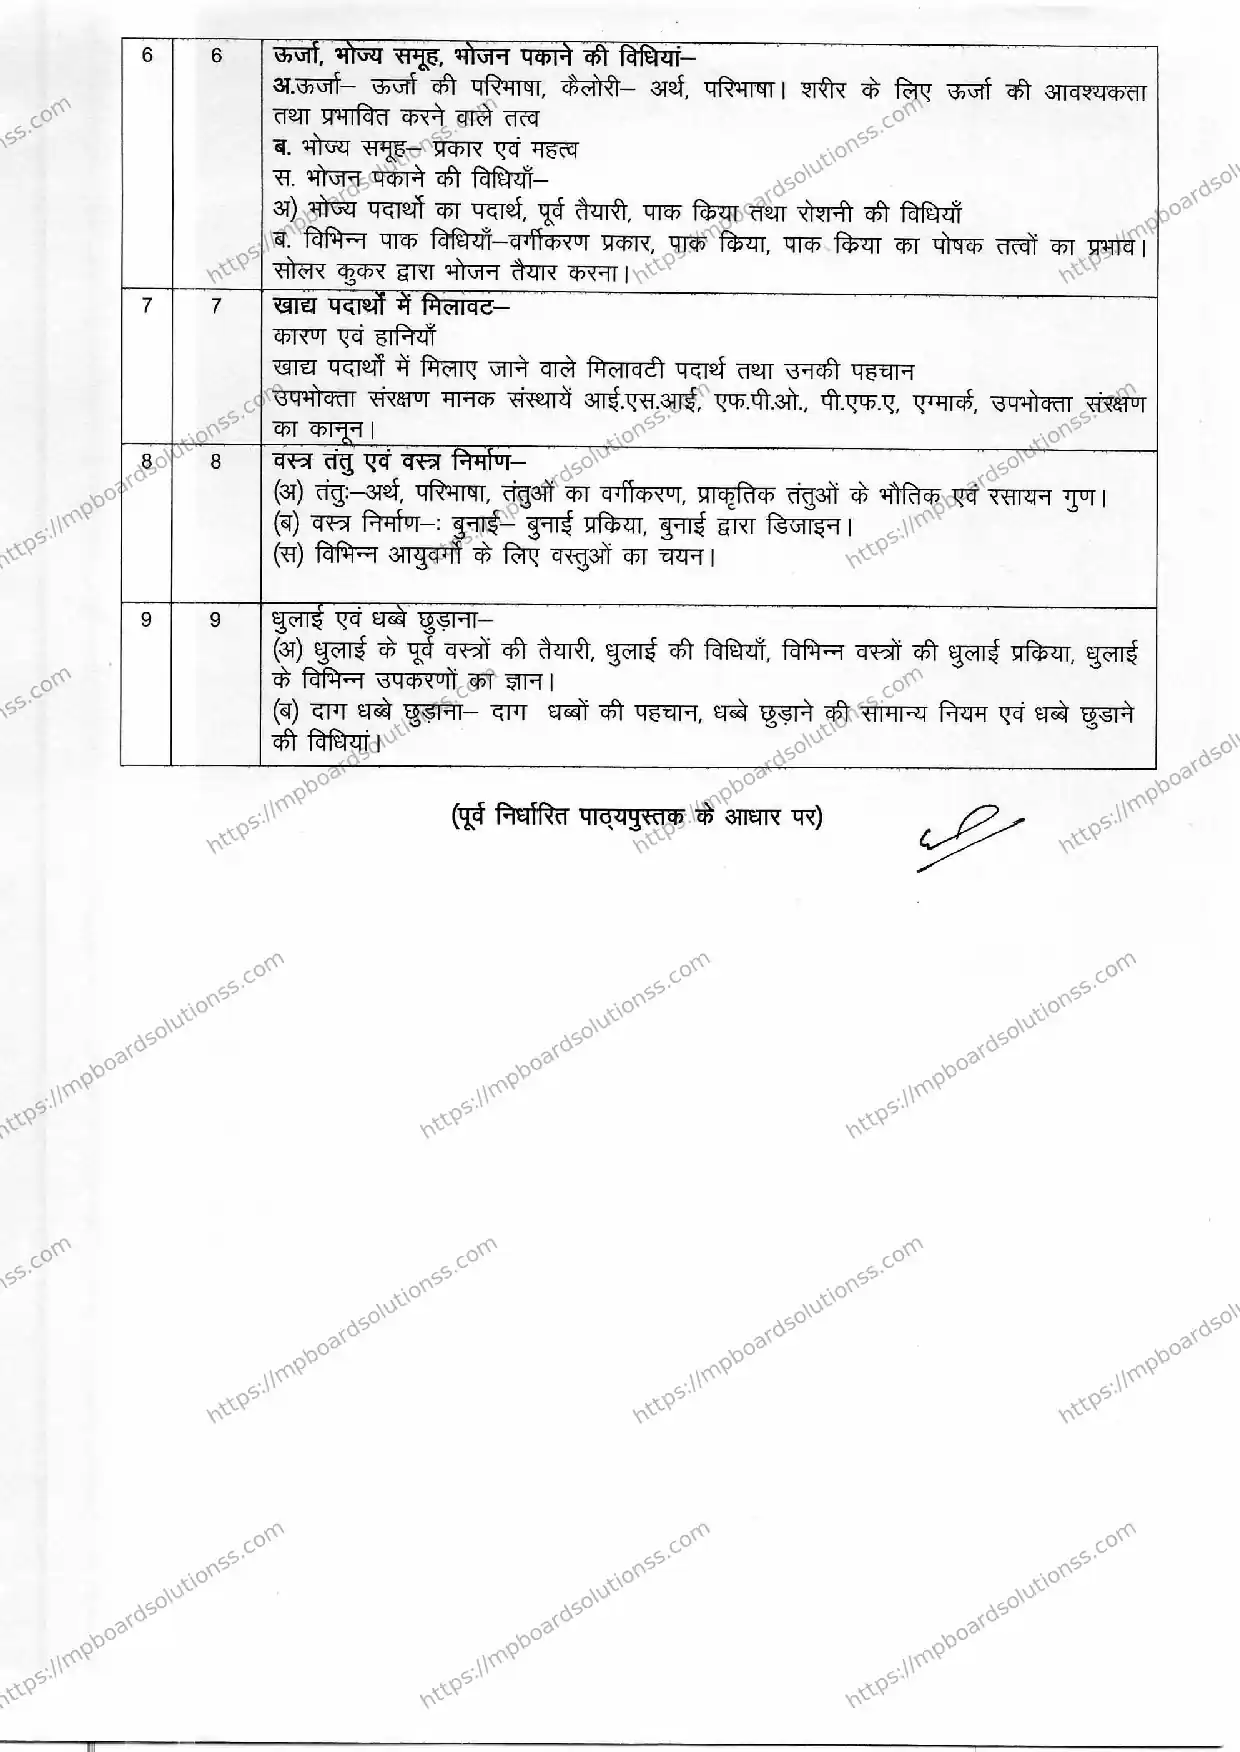 6 6 ऊर्जा, भोज्य समूह, भोजन पकाने की विधियां–
अ.ऊर्जा– ऊर्जा की परिभाषा, कैलोरी– अर्थ, परिभाषा। शरीर के लिए ऊर्जा की आवश्यकता
तथा प्रभावित करने वाले तत्व
ब. भोज्य समूह– प्रकार एवं महत्व
स. भोजन पकाने की विधियाँ–
अ) भोज्य पदार्थो का पदार्थ, पूर्व तैयारी, पाक किया तथा रोशनी की विधियाँ
ब. विभिन्न पाक विधियाँ–वर्गीकरण प्रकार, पाक किया, पाक किया का पोषक तत्वों का प्रभाव।
सोलर कुकर द्वारा भोजन तैयार करना।
7 7 खाद्य पदार्थों में मिलावट–
कारण एवं हानियाँ
खाद्य पदार्थों में मिलाए जाने वाले मिलावटी पदार्थ तथा उनकी पहचान
उपभोक्ता संरक्षण मानक संस्थायें आई.एस.आई, एफ.पी.ओ., पी.एफ.ए, एग्मार्क, उपभोक्ता संरक्षण
का कानून।
8 8 वस्त्र तंतु एवं वस्त्र निर्माण–
(अ) तंतुः–अर्थ, परिभाषा, तंतुओं का वर्गीकरण, प्राकृतिक तंतुओं के भौतिक एवं रसायन गुण।
(ब) वस्त्र निर्माण–: बुनाई– बुनाई प्रकिया, बुनाई द्वारा डिजाइन।
(स) विभिन्न आयुवर्गो के लिए वस्तुओं का चयन।
9 9 धुलाई एवं धब्बे छुड़ाना–
(अ) धुलाई के पूर्व वस्त्रों की तैयारी, धुलाई की विधियाँ, विभिन्न वस्त्रों की धुलाई प्रकिया, धुलाई
के विभिन्न उपकरणों का ज्ञान।
(ब) दाग धब्बे छुड़ाना– दाग धब्बों की पहचान, धब्बे छुड़ाने की सामान्य नियम एवं धब्बे छुडाने
की विधियां।
(पूर्व निर्धारित पाठ्यपुस्तक के आधार पर)
https://mpboardsolutionss.com